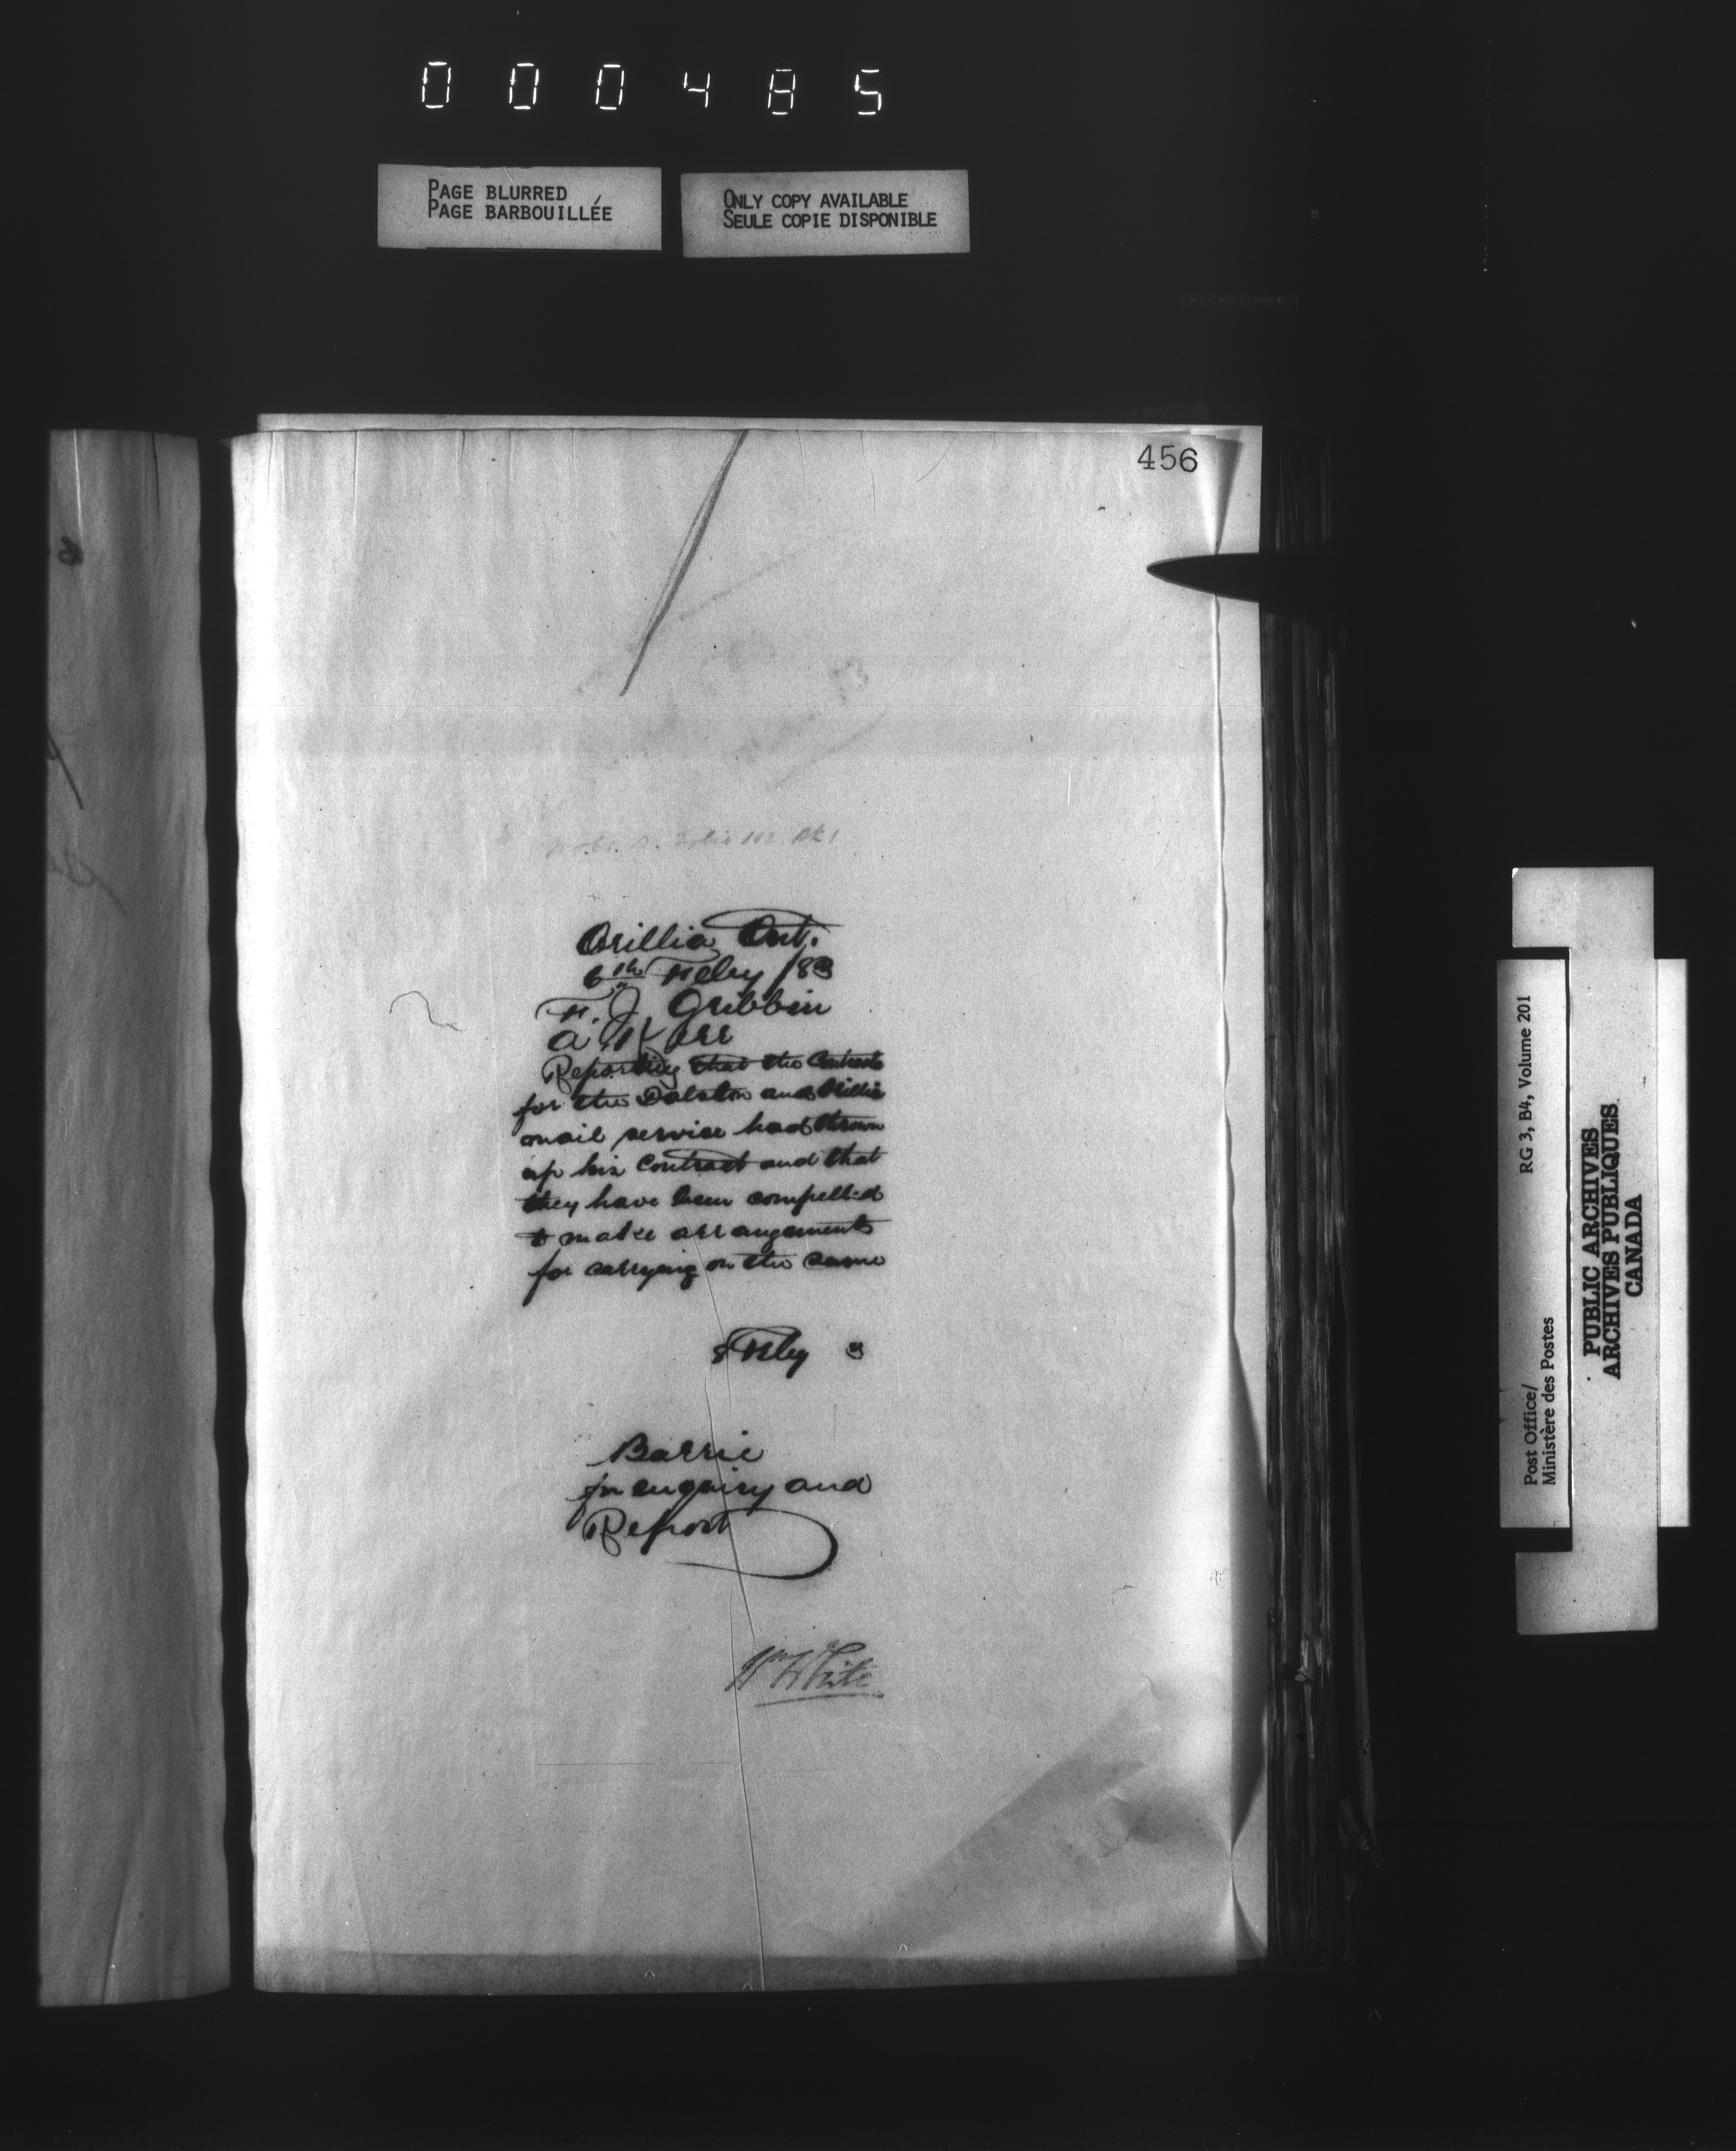 000485
PAGE BLURRED
PAGE BARBOUILLÉE
ONLY COPY AVAILABLE
SEULE COPIE DISPONIBLE
456
Orillia Ont.
6th Feby /83
F. J. Gribbin
A. Kerr
Reporting that the Contractor
for the Dalston and Orillia
mail service had thrown
up his Contract and that
they have been compelled
to make arrangements
for carrying on the same
8 Feby 3
Barrie
for enquiry and
Report
Wm White
RG 3, B4, Volume 201
Post Office/
Ministère des Postes
PUBLIC ARCHIVES
ARCHIVES PUBLIQUES
CANADA